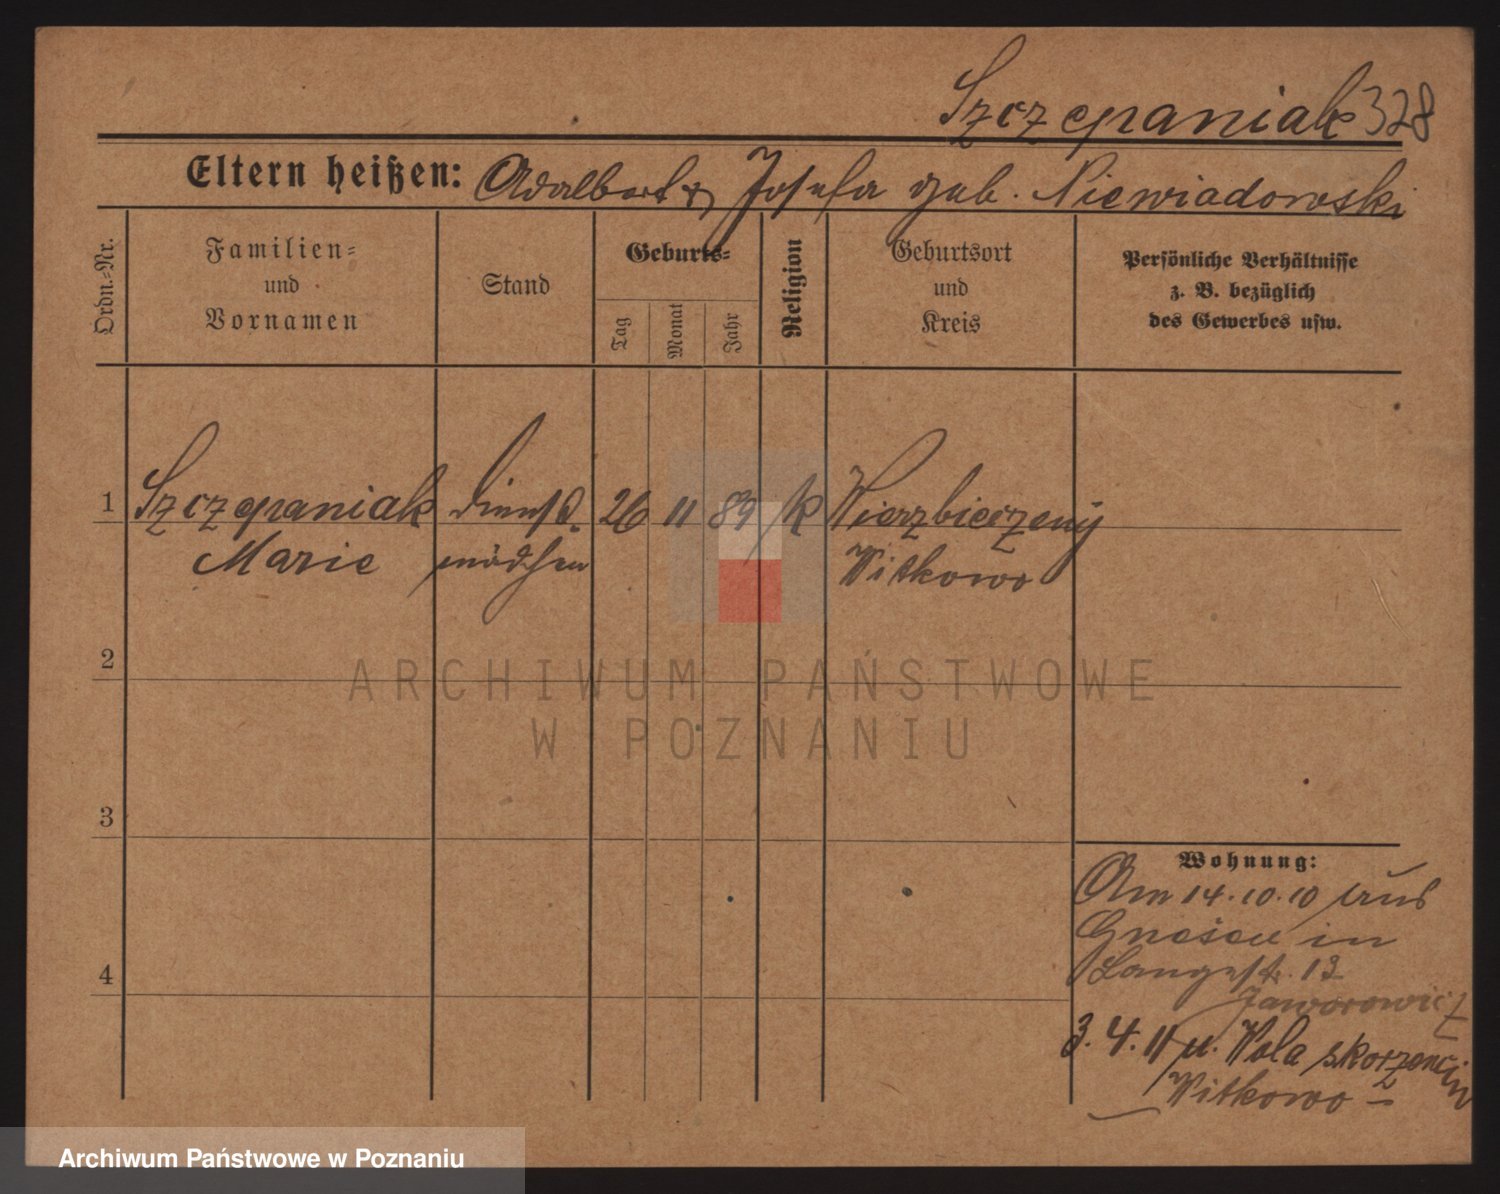 Szczepaniak 328
Eltern heißen: Adalbert u Josefa geb. Niewiadowski
Ordn.-Nr.
Familien-
und
Vornamen
Stand
Geburts-
Tag
Monat
Jahr
Religion
Geburtsort
und
Kreis
Persönliche Verhältnisse
z. B. bezüglich
des Gewerbes usw.
1 Szczepaniak Dienst- 26 11 89 k Wierzbiczeny
Marie mädchen Witkowo
2
3
4
Wohnung:
Am 14.10.10 aus
Gnesen in
Langestr. 13
Jaworowicz
3.4.11 n. Wola skorzencin
Witkowo
ARCHIWUM PAŃSTWOWE
W POZNANIU
Archiwum Państwowe w Poznaniu